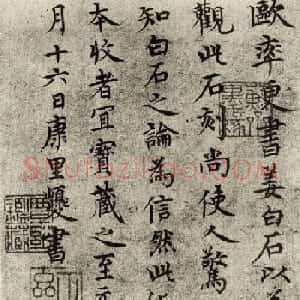 歐率更書姜白石以
觀此石刻尚使人驚
知白石之論為信然此
本收者宜寶藏之至元
月十六日康里巎書